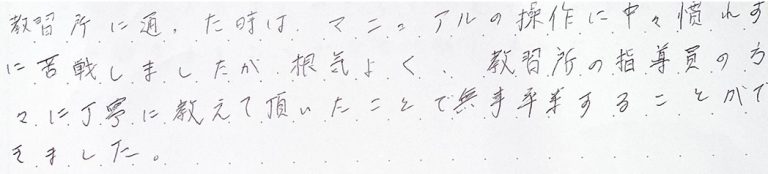 教習所に通った時は、マニュアルの操作に中々慣れず
に苦戦しましたが、根気よく、教習所の指導員の方
々に丁寧に教えて頂いたことで無事卒業することがで
きました。